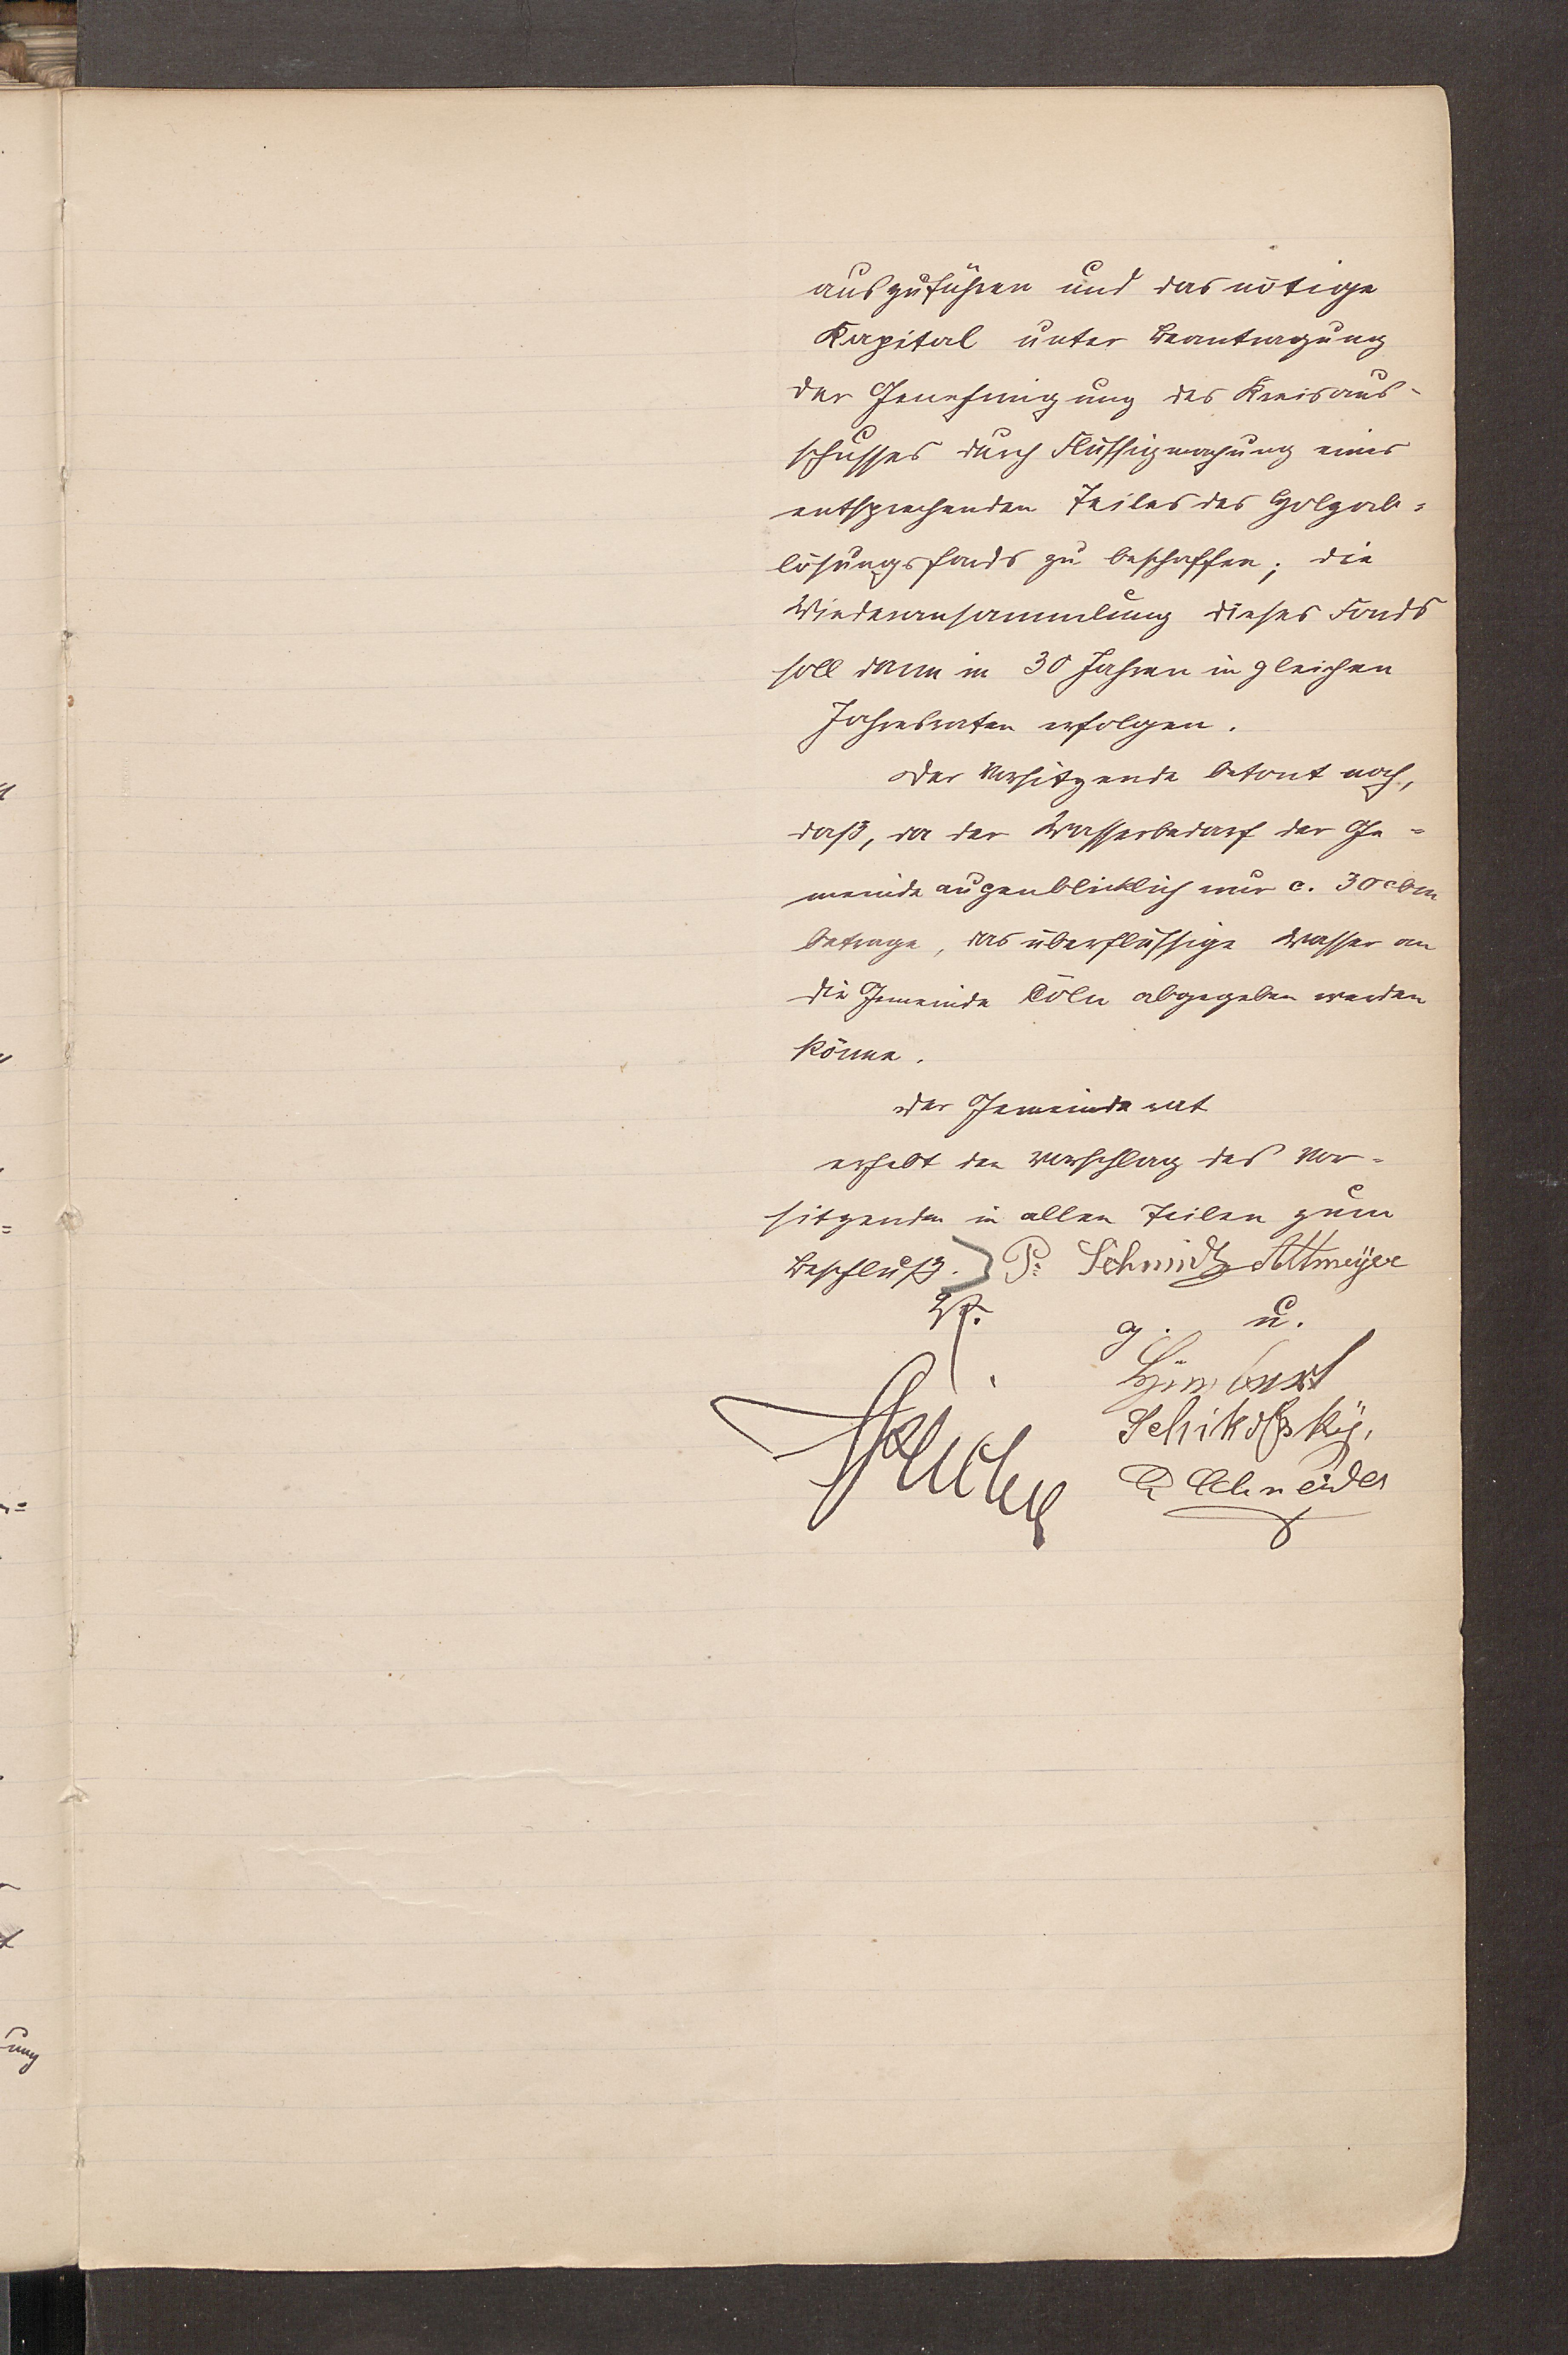 auszuführen und das nötige
Kapital unter Beantragung
der Genehmigung des Kreisaus-
schusses durch Flüssigmachung eines
entsprechenden Teiles des Holzab=
lösungsfonds zu beschaffen; die
Wiederansammlung dieses Fonds
soll dann in 30 Jahren in gleichen
Jahresraten erfolgen.
Der Vorsitzende betont noch,
daß, da der Wasserbedarf der Ge=
meinde augenblicklich nur c. 30 cbm
betrage, das überflüssige Wasser an
die Gemeinde Cöln abgegeben werden
könne.
Der Gemeinderat
erhebt den Vorschlag des Vor=
sitzenden in allen Teilen zum
Beschluß. P. Schmidt Altmeyer
g. u.
Schikofsky,
Schneider